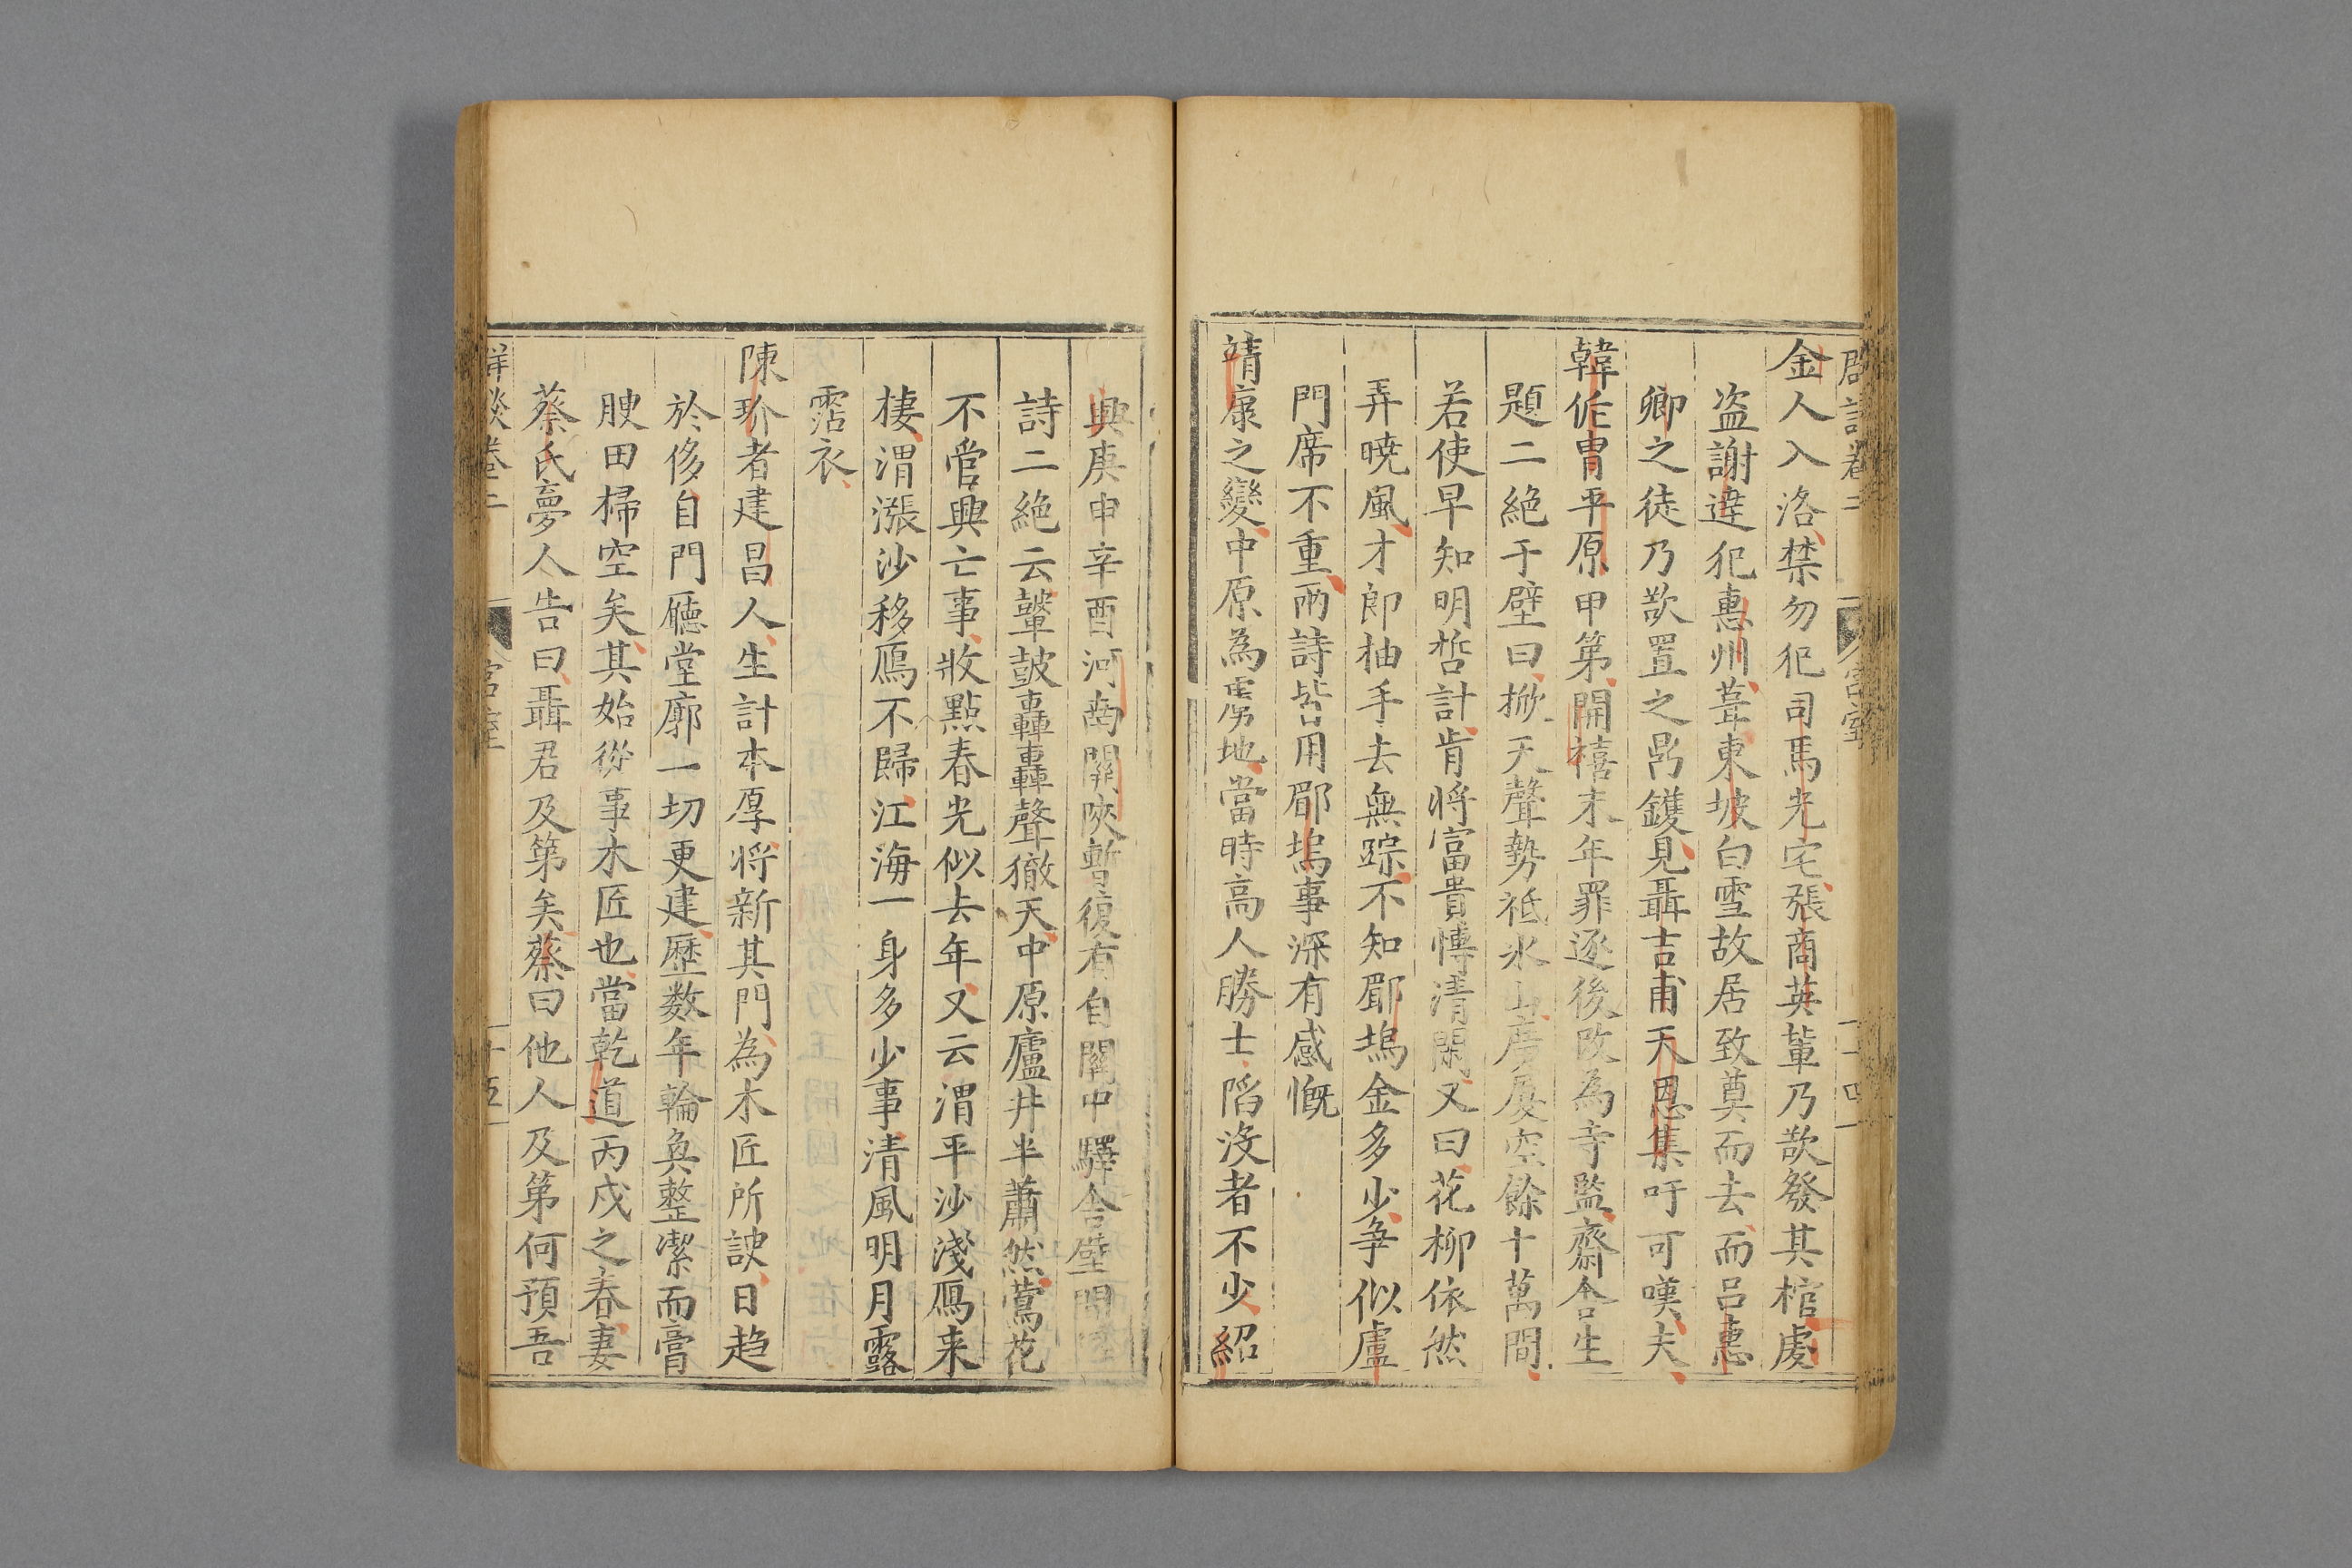 群談卷二 宮室 十四
金人入洛禁勿犯司馬光宅張商英輩乃欲發其棺處
盜謝達犯惠州葺東坡白雪故居致奠而去而呂惠
卿之徒乃欲置之鼎鑊見聶吉甫天恩集吁可嘆夫
韓侂冑平原甲第開禧末年罪逐後改為寺監齋舍生
題二絕于壁曰掀天聲勢祗氷山廣廈空餘十萬間
若使早知明哲計肯将富貴愽清閑又曰花柳依然
弄曉風才郎柚手去無踪不知郿塢金多少爭似盧
門席不重兩詩皆用郿塢事深有感慨
靖康之變中原為虜地當時高人勝士䧟沒者不少紹
興庚申辛酉河南関陝暫復有自關中驛舍壁間
詩二絕云鼙皷轟轟聲徹天中原廬井半蕭然鶯花
不管興亡事妝點春光似去年又云渭平沙淺鴈来
棲渭漲沙移鴈不歸江海一身多少事清風明月露
霑衣
陳玠者建昌人生計本厚将新其門為木匠所諛日趋
於侈自門廳堂廓一切更建歷数年輪奐整潔而膏
腴田掃空矣其始從事木匠也當乾道丙戌之春妻
蔡氏夢人告曰聶君及第矣蔡曰他人及第何預吾
群談卷二 宮室 十五